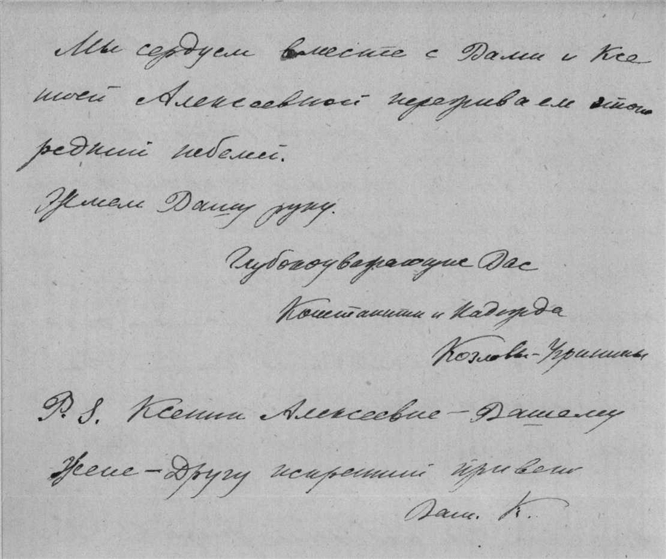 Мы сердцем вместе с Вами и Ксе
нией Алексеевной переживаем этот
редкий юбилей.
Жмем Вашу руку.
Глубокоуважающие Вас
Константин и Надежда
Козловы-
P.S. Ксении Алексеевне - Вашему
Жене-Другу искренний привет
К.